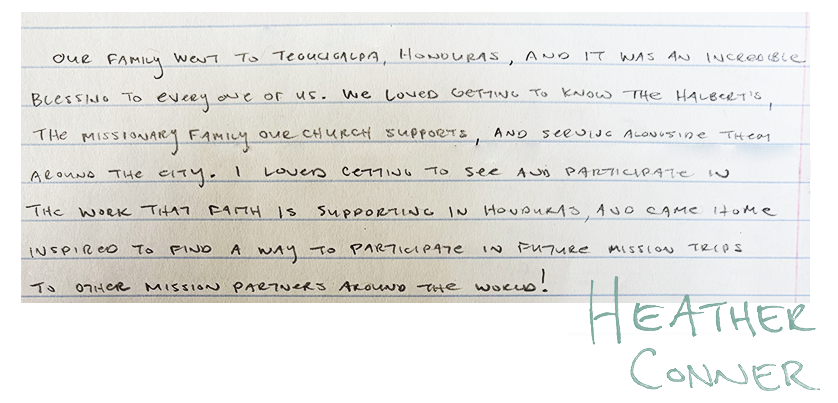 OUR FAMILY WENT TO TEGUCIGALPA, HONDURAS, AND IT WAS AN INCREDIBLE
BLESSING TO EVERY ONE OF US. WE LOVED GETTING TO KNOW THE HALBERT'S,
THE MISSIONARY FAMILY OUR CHURCH SUPPORTS, AND SERVING ALONGSIDE THEM
AROUND THE CITY. I LOVED GETTING TO SEE AND PARTICIPATE IN
THE WORK THAT FAITH IS SUPPORTING IN HONDURAS, AND CAME HOME
INSPIRED TO FIND A WAY TO PARTICIPATE IN FUTURE MISSION TRIPS
TO OTHER MISSION PARTNERS AROUND THE WORLD!
HEATHER
CONNER